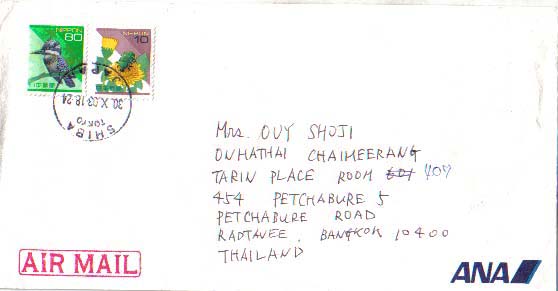 NIPPON
80
NIPPON
10
日本郵便
日本郵便
SHIBA
30.X.03.18-24
TOKYO
JAPAN
Mrs. OVY SHOJI
ONHATHAI CHAIMEERANG
TARIN PLACE ROOM 601 407
454 PETCHABURE 5
PETCHABURE ROAD
RADTAVEE. BANGKOK 10400
THAILAND
AIR MAIL
ANA